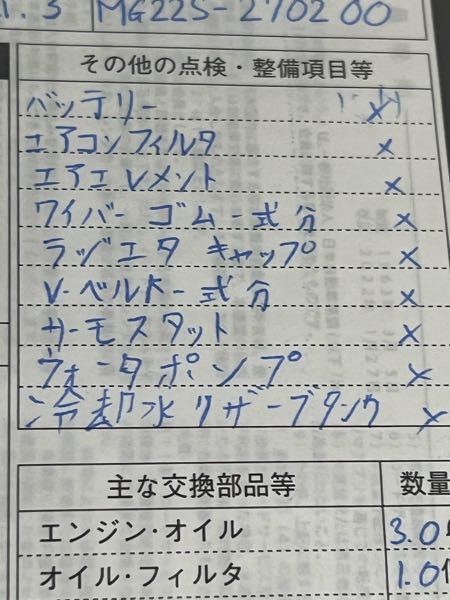 1.3 MG22S-270200
その他の点検・整備項目等
バッテリー ×
エアコンフィルタ ×
エアエレメント ×
ワイパーゴム一式分 ×
ラジエタキャップ ×
V-ベルト一式分 ×
サーモスタット ×
ウォータポンプ ×
冷却水リザーブタンク ×
主な交換部品等 数量
エンジン・オイル 3.0
オイル・フィルタ 1.0